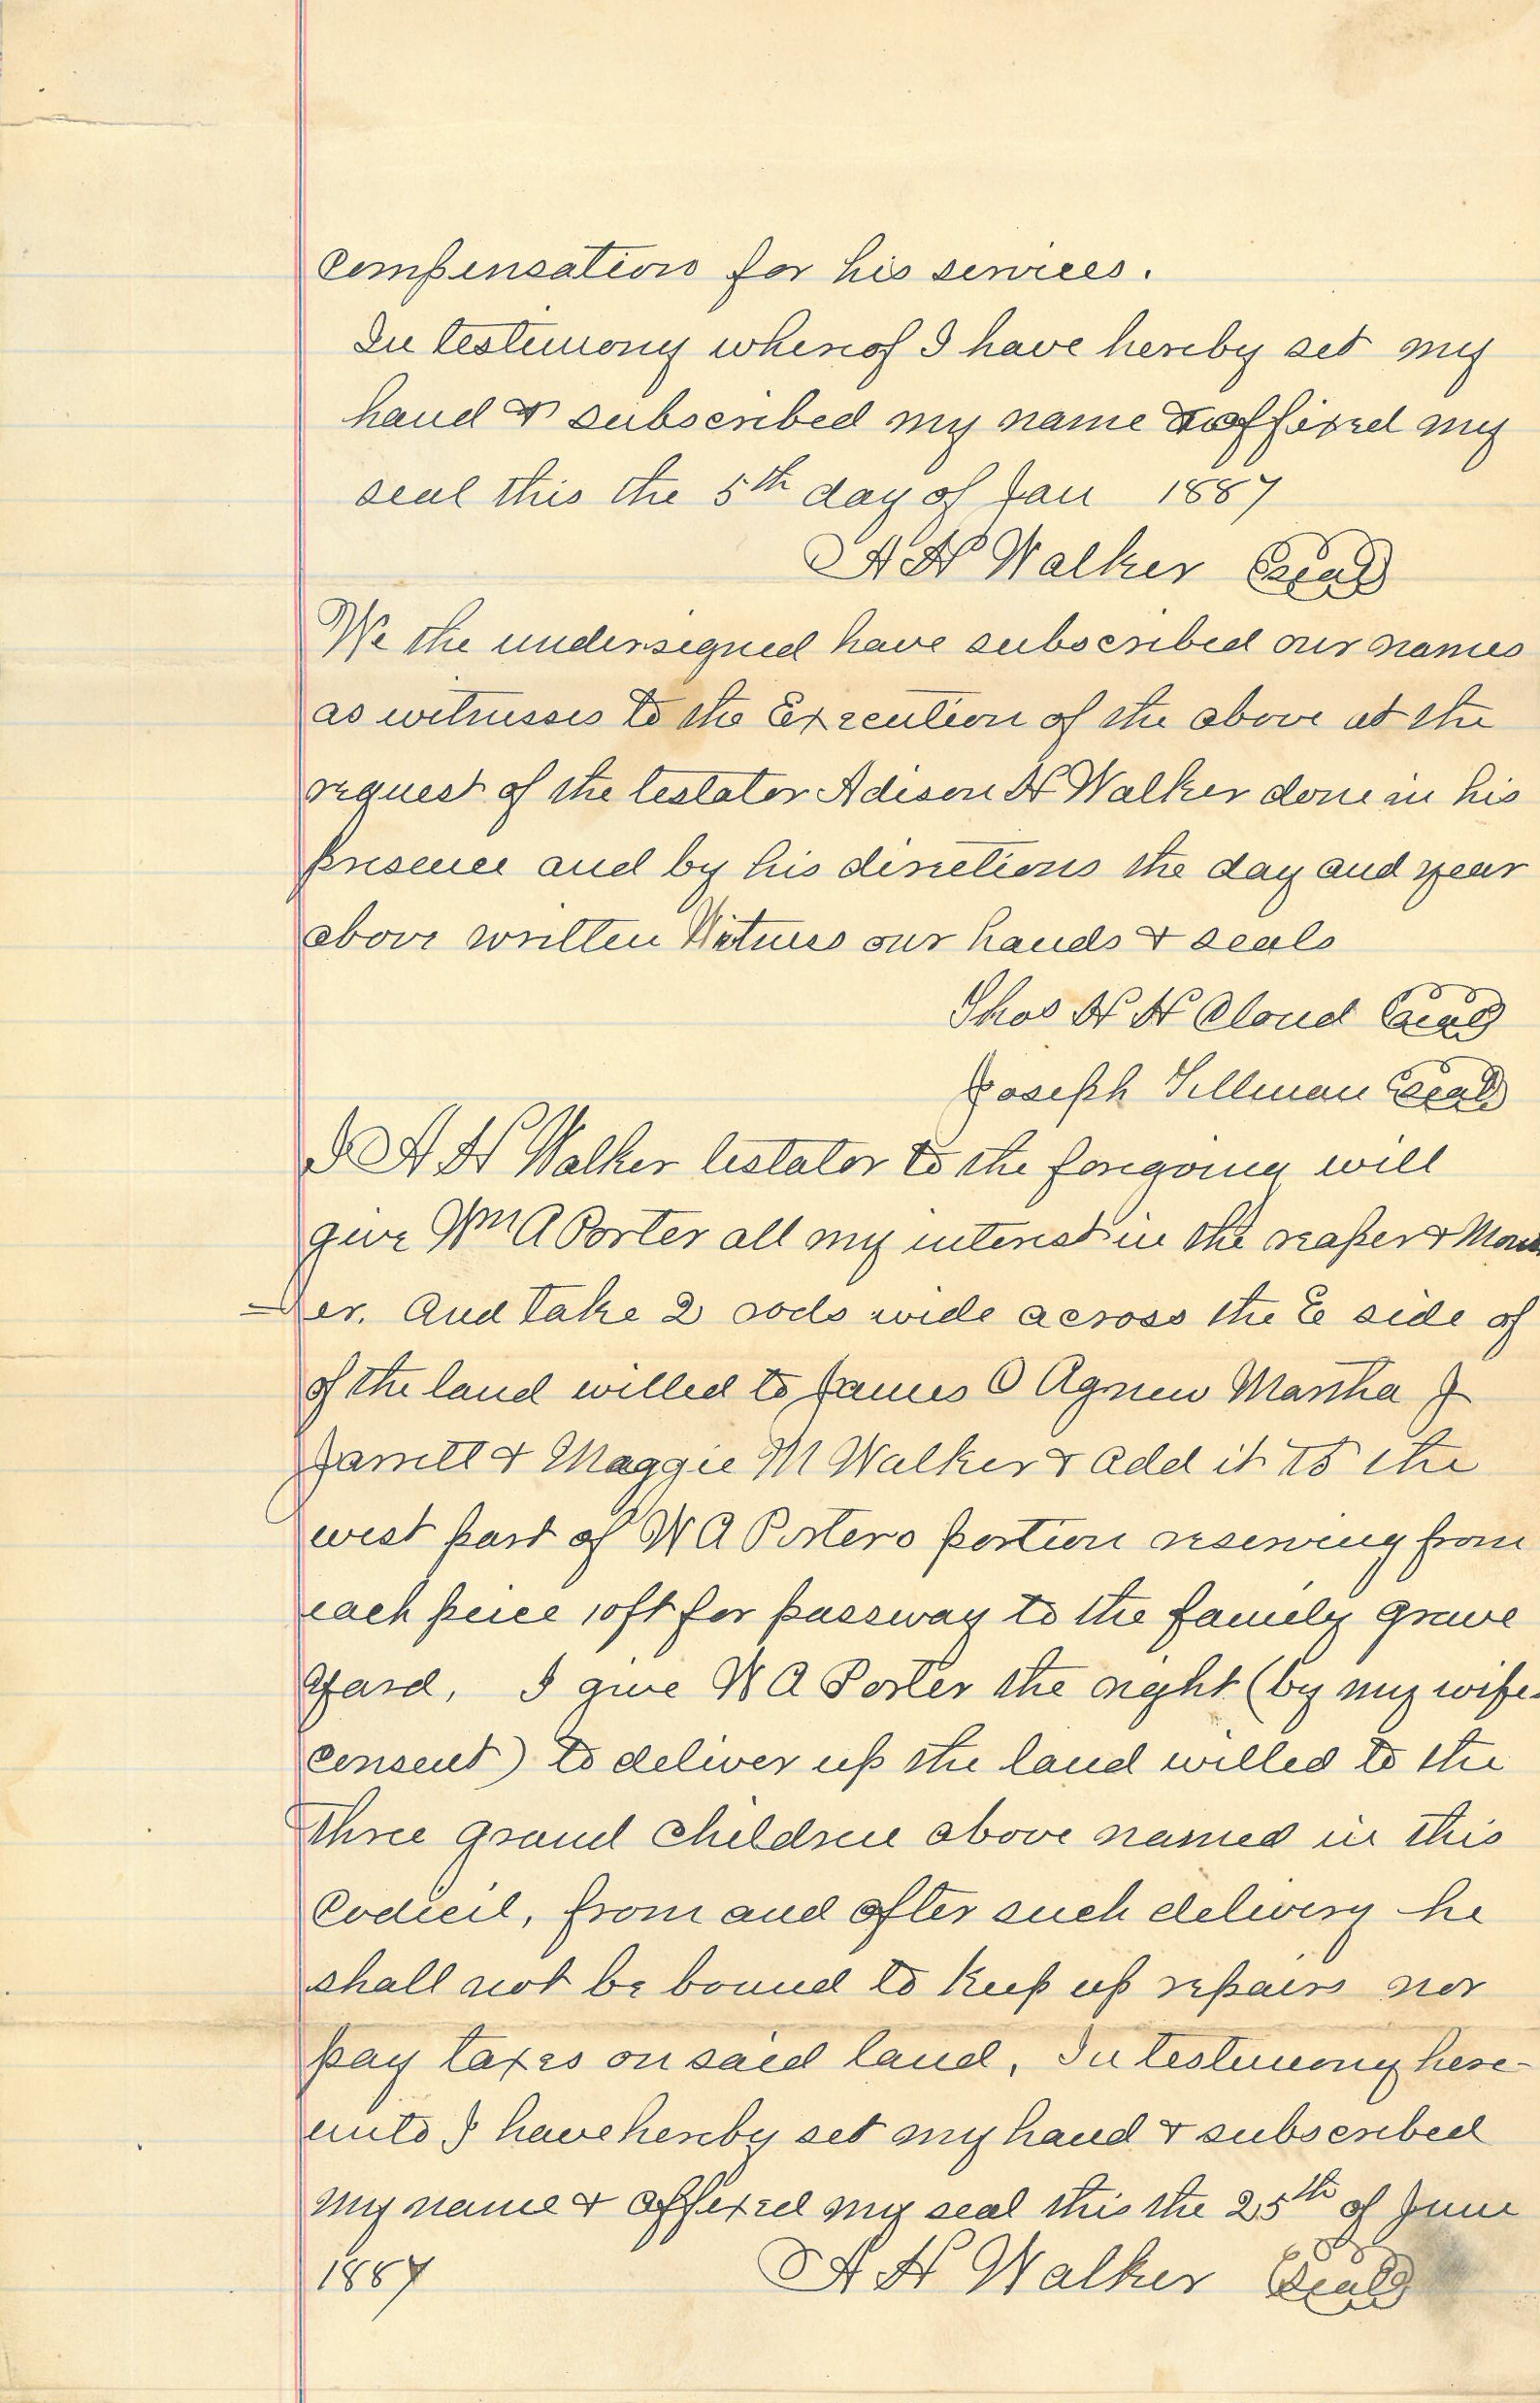 compensation for his services.
In testimony whereof I have hereby set my
hand & subscribed my name & affixed my
seal this the 5th day of Jan 1887
A H Walker Seal
We the undersigned have subscribed our names
as witnesses to the Execution of the above at the
request of the testator Adison H Walker done in his
presence and by his directions the day and year
above written Witness our hands & seals
Thos H H Cloud Seal
Joseph Tillman Seal
I A H Walker testator to the foregoing will
give Wm A Porter all my interest in the reaper & Mow
=er. And take 2 rods wide across the E side of
of the land willed to James O Agnew Martha J
Jarrett & Maggie M Walker & add it to the
west part of W A Porters portion reserving from
each peice 10ft for passway to the family grave
yard, I give W A Porter the right (by my wifes
consent) to deliver up the land willed to the
three grand children above named in this
Codicil, from and after such delivery he
shall not be bound to keep up repairs nor
pay taxes on said land, In testimony here-
unto I have hereby set my hand & subscribed
my name & affixed my seal this the 25th of June
1887 A H Walker Seal